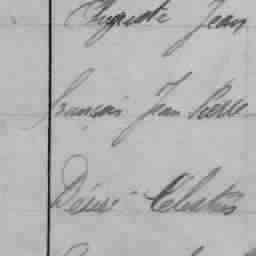 Auguste Jean
François Jean Pierre
Désiré Célestin